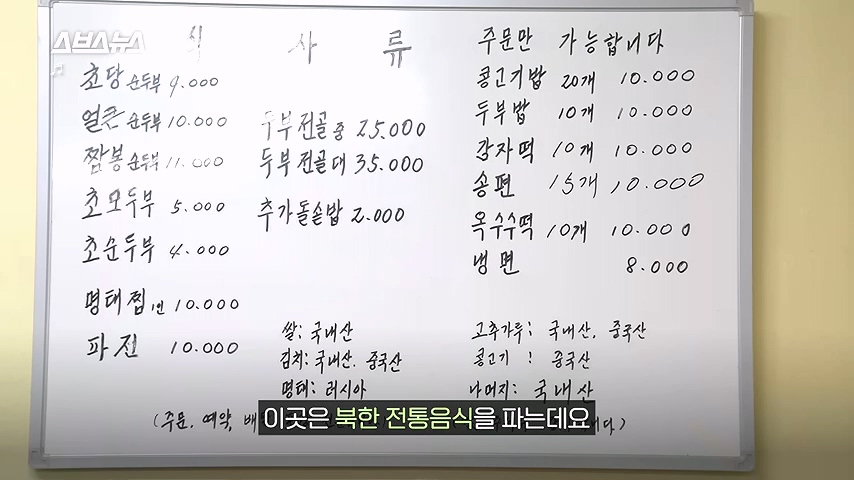 스브스뉴스
식 사 류
초당 순두부 9.000
얼큰 순두부 10.000
짬뽕 순두부 11.000
초모두부 5.000
초순두부 4.000
명태찜 1인 10.000
파전 10.000
두부전골 중 25.000
두부전골 대 35.000
추가돌솥밥 2.000
쌀: 국내산
김치: 국내산. 중국산
명태: 러시아
주문만 가능합니다
콩고기밥 20개 10.000
두부밥 10개 10.000
감자떡 10개 10.000
송편 15개 10.000
옥수수떡 10개 10.000
냉면 8.000
고추가루: 국내산. 중국산
콩고기: 중국산
나머지: 국내산
(주문, 예약, 배
이곳은 북한 전통음식을 파는데요